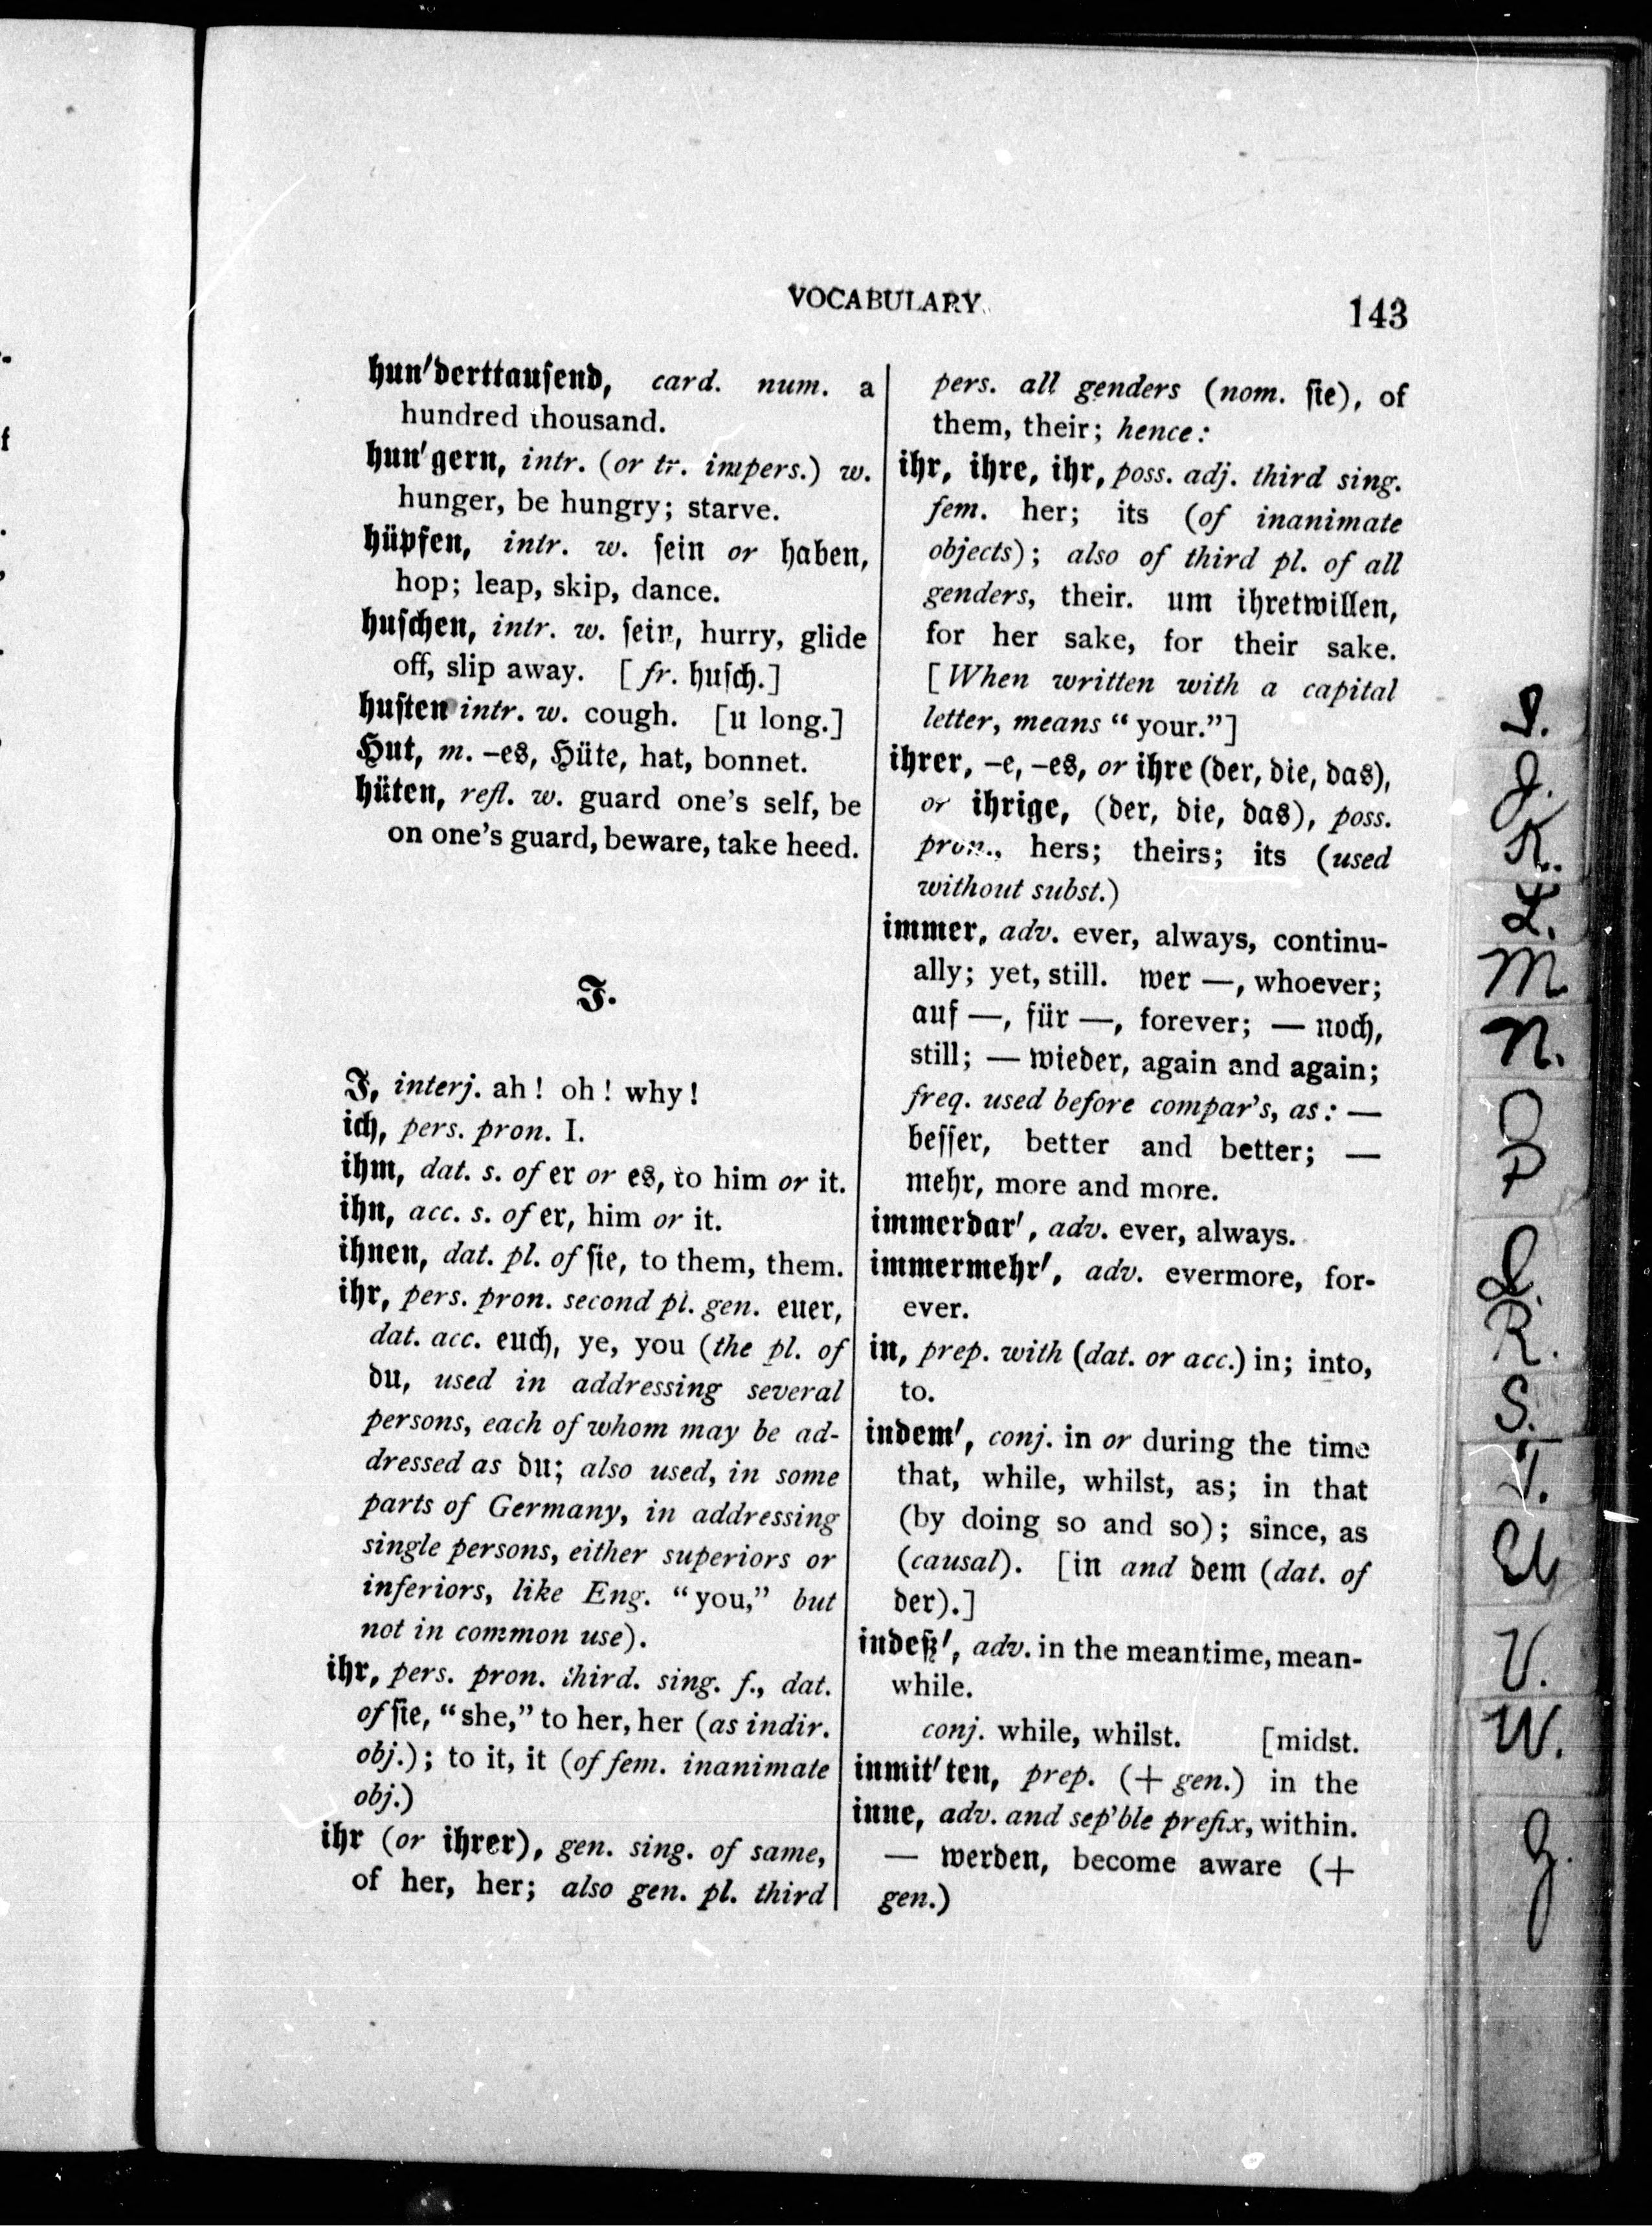 VOCABULARY.
143
hun′derttausend, card. num. a
hundred thousand.
hun′gern, intr. (or tr. impers.) w.
hunger, be hungry; starve.
hüpfen, intr. w. sein or haben,
hop; leap, skip, dance.
huschen, intr. w. sein, hurry, glide
off, slip away. [fr. husch.]
husten intr. w. cough. [u long.]
Hut, m. –es, Hüte, hat, bonnet.
hüten, refl. w. guard one's self, be
on one's guard, beware, take heed.
I.
I, interj. ah! oh! why!
ich, pers. pron. I.
ihm, dat. s. of er or es, to him or it.
ihn, acc. s. of er, him or it.
ihnen, dat. pl. of sie, to them, them.
ihr, pers. pron. second pl. gen. euer,
dat. acc. euch, ye, you (the pl. of
du, used in addressing several
persons, each of whom may be ad-
dressed as du; also used, in some
parts of Germany, in addressing
single persons, either superiors or
inferiors, like Eng. "you," but
not in common use).
ihr, pers. pron. third. sing. f., dat.
of sie, "she," to her, her (as indir.
obj.); to it, it (of fem. inanimate
obj.)
ihr (or ihrer), gen. sing. of same,
of her, her; also gen. pl. third
pers. all genders (nom. sie), of
them, their; hence:
ihr, ihre, ihr, poss. adj. third sing.
fem. her; its (of inanimate
objects); also of third pl. of all
genders, their. um ihretwillen,
for her sake, for their sake.
[When written with a capital
letter, means "your."]
ihrer, –e, –es, or ihre (der, die, das),
or ihrige, (der, die, das), poss.
pron., hers; theirs; its (used
without subst.)
immer, adv. ever, always, continu-
ally; yet, still. wer —, whoever;
auf —, für —, forever; — noch,
still; — wieder, again and again;
freq. used before compar's, as: —
besser, better and better; —
mehr, more and more.
immerdar′, adv. ever, always.
immermehr′, adv. evermore, for-
ever.
in, prep. with (dat. or acc.) in; into,
to.
indem′, conj. in or during the time
that, while, whilst, as; in that
(by doing so and so); since, as
(causal). [in and dem (dat. of
der).]
indeß′, adv. in the meantime, mean-
while.
conj. while, whilst. [midst.
inmit′ten, prep. (+ gen.) in the
inne, adv. and sep'ble prefix, within.
— werden, become aware (+
gen.)
I.
J.
K.
L.
M
N.
O
P
Q.
R.
S.
T.
U
V.
W.
Z.